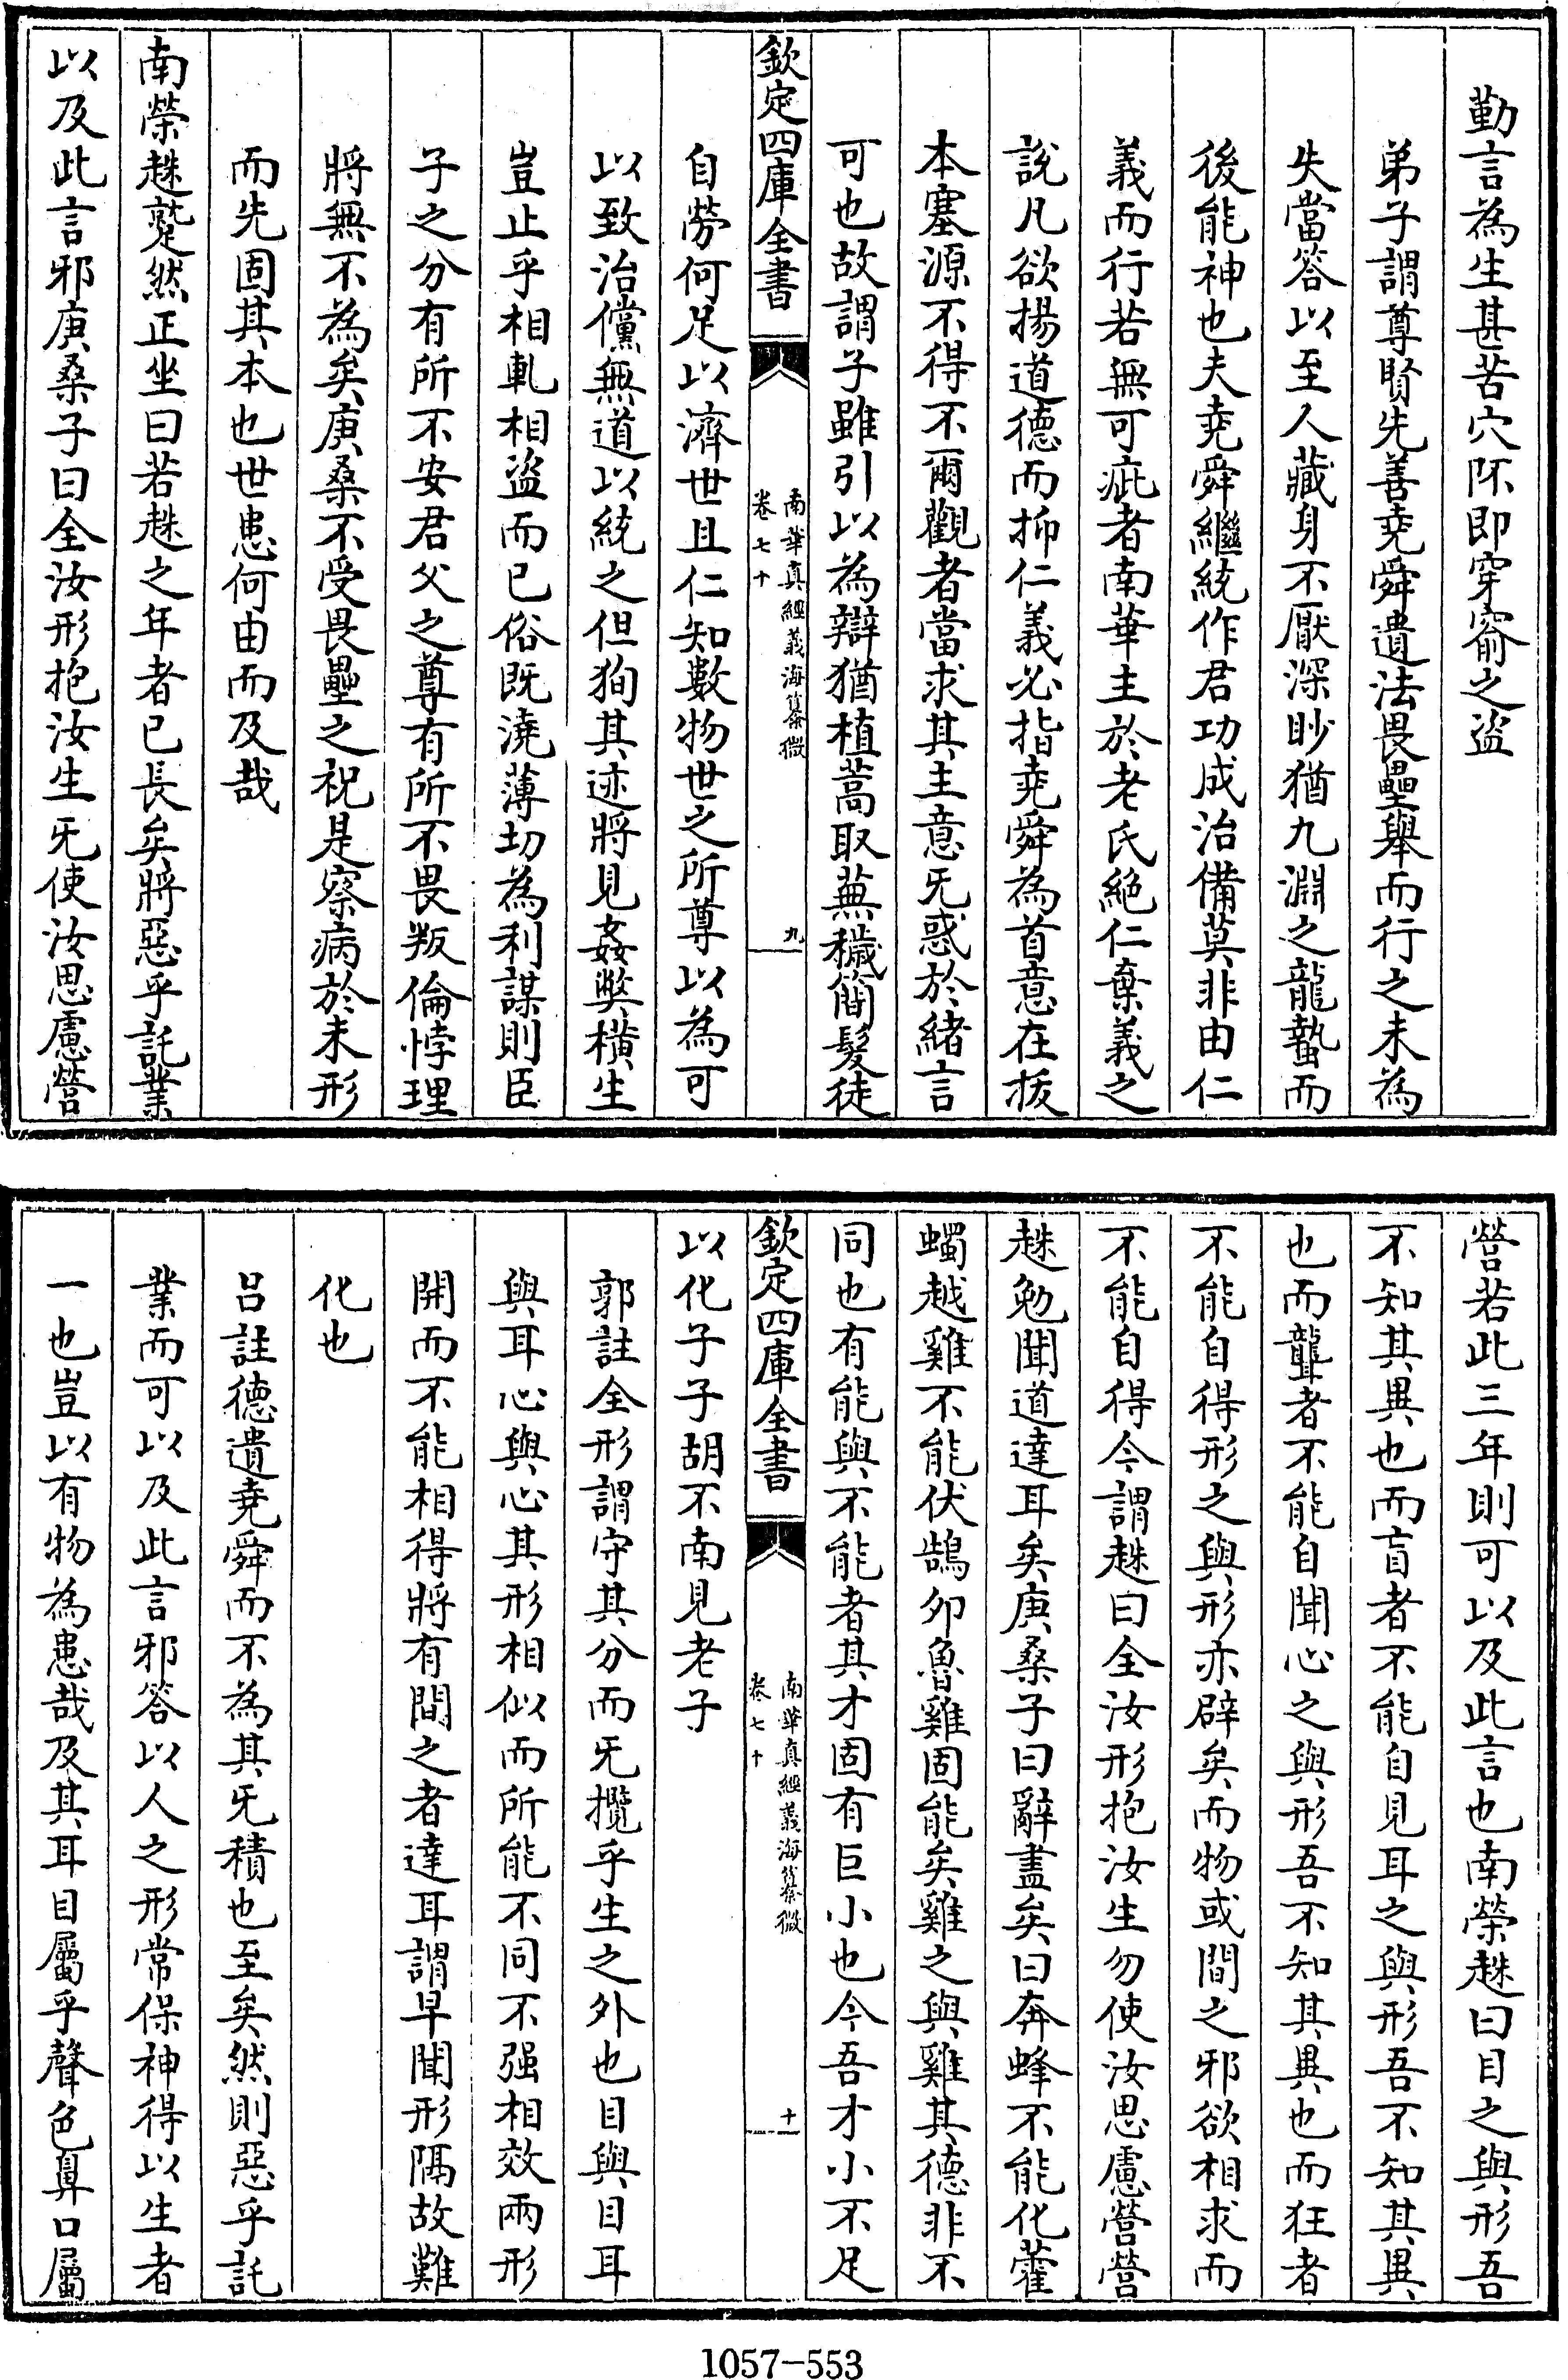 勤言為生甚苦穴阫即穿窬之盜
弟子謂尊賢先善堯舜遺法畏壘舉而行之未為
失當答以至人藏身不厭深眇猶九淵之龍蟄而
後能神也夫堯舜繼統作君功成治備莫非由仁
義而行若無可疵者南華主於老氏絕仁棄義之
說凡欲揚道德而抑仁義必指堯舜為首意在拔
本塞源不得不爾觀者當求其主意旡惑於緒言
可也故謂子雖引以為辯猶植蒿取蕪穢簡髮徒
欽定四庫全書
南華真經義海纂微
卷七十
九
自勞何足以濟世且仁知數物世之所尊以為可
以致治儻無道以統之但狥其迹將見姦弊橫生
豈止乎相軋相盜而已俗既澆薄切為利謀則臣
子之分有所不安君父之尊有所不畏叛倫悖理
將無不為矣庚桑不受畏壘之祝是察病於未形
而先固其本也世患何由而及哉
南榮趎蹵然正坐曰若趎之年者已長矣將惡乎託業
以及此言邪庚桑子曰全汝形抱汝生旡使汝思慮營
營若此三年則可以及此言也南榮趎曰目之與形吾
不知其異也而盲者不能自見耳之與形吾不知其異
也而聾者不能自聞心之與形吾不知其異也而狂者
不能自得形之與形亦辟矣而物或間之邪欲相求而
不能自得今謂趎曰全汝形抱汝生勿使汝思慮營營
趎勉聞道達耳矣庚桑子曰辭盡矣曰奔蜂不能化藿
蠋越雞不能伏鵠卵魯雞固能矣雞之與雞其德非不
同也有能與不能者其才固有巨小也今吾才小不足
欽定四庫全書
南華真經義海纂微
卷七十
十
以化子子胡不南見老子
郭註全形謂守其分而旡攬乎生之外也目與目耳
與耳心與心其形相似而所能不同不强相效兩形
開而不能相得將有間之者達耳謂早聞形隔故難
化也
呂註德遺堯舜而不為其旡積也至矣然則惡乎託
業而可以及此言邪答以人之形常保神得以生者
一也豈以有物為患哉及其耳目屬乎聲色鼻口屬
1057-553